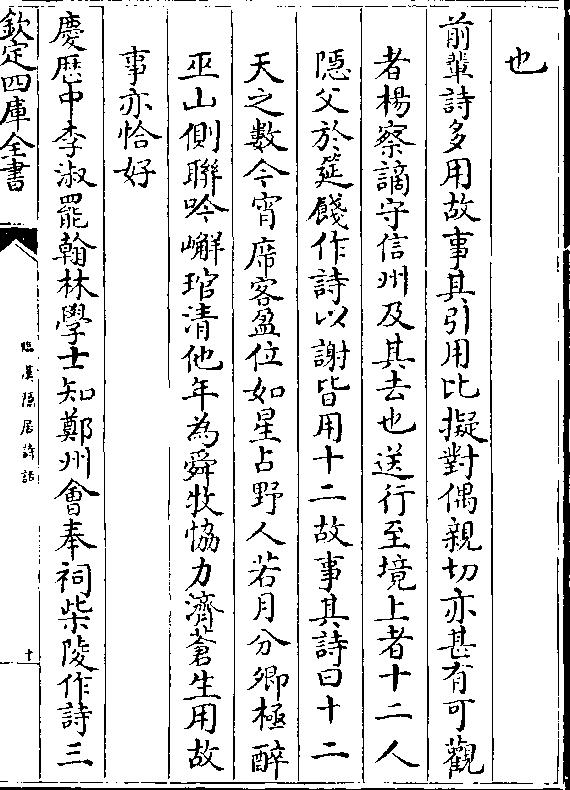 也
前輩詩多用故事其引用比擬對偶親切亦甚有可觀
者楊察謫守信州及其去也送行至境上者十二人
隱父於筵餞作詩以謝皆用十二故事其詩曰十二
天之數今宵席客盈位如星占野人若月分卿極醉
巫山側聯吟嶰琯清他年為舜牧恊力濟蒼生用故
事亦恰好
慶歴中李淑罷翰林學士知鄭州會奉祠柴陵作詩三
欽定四庫全書
臨漢隠居詩話
十